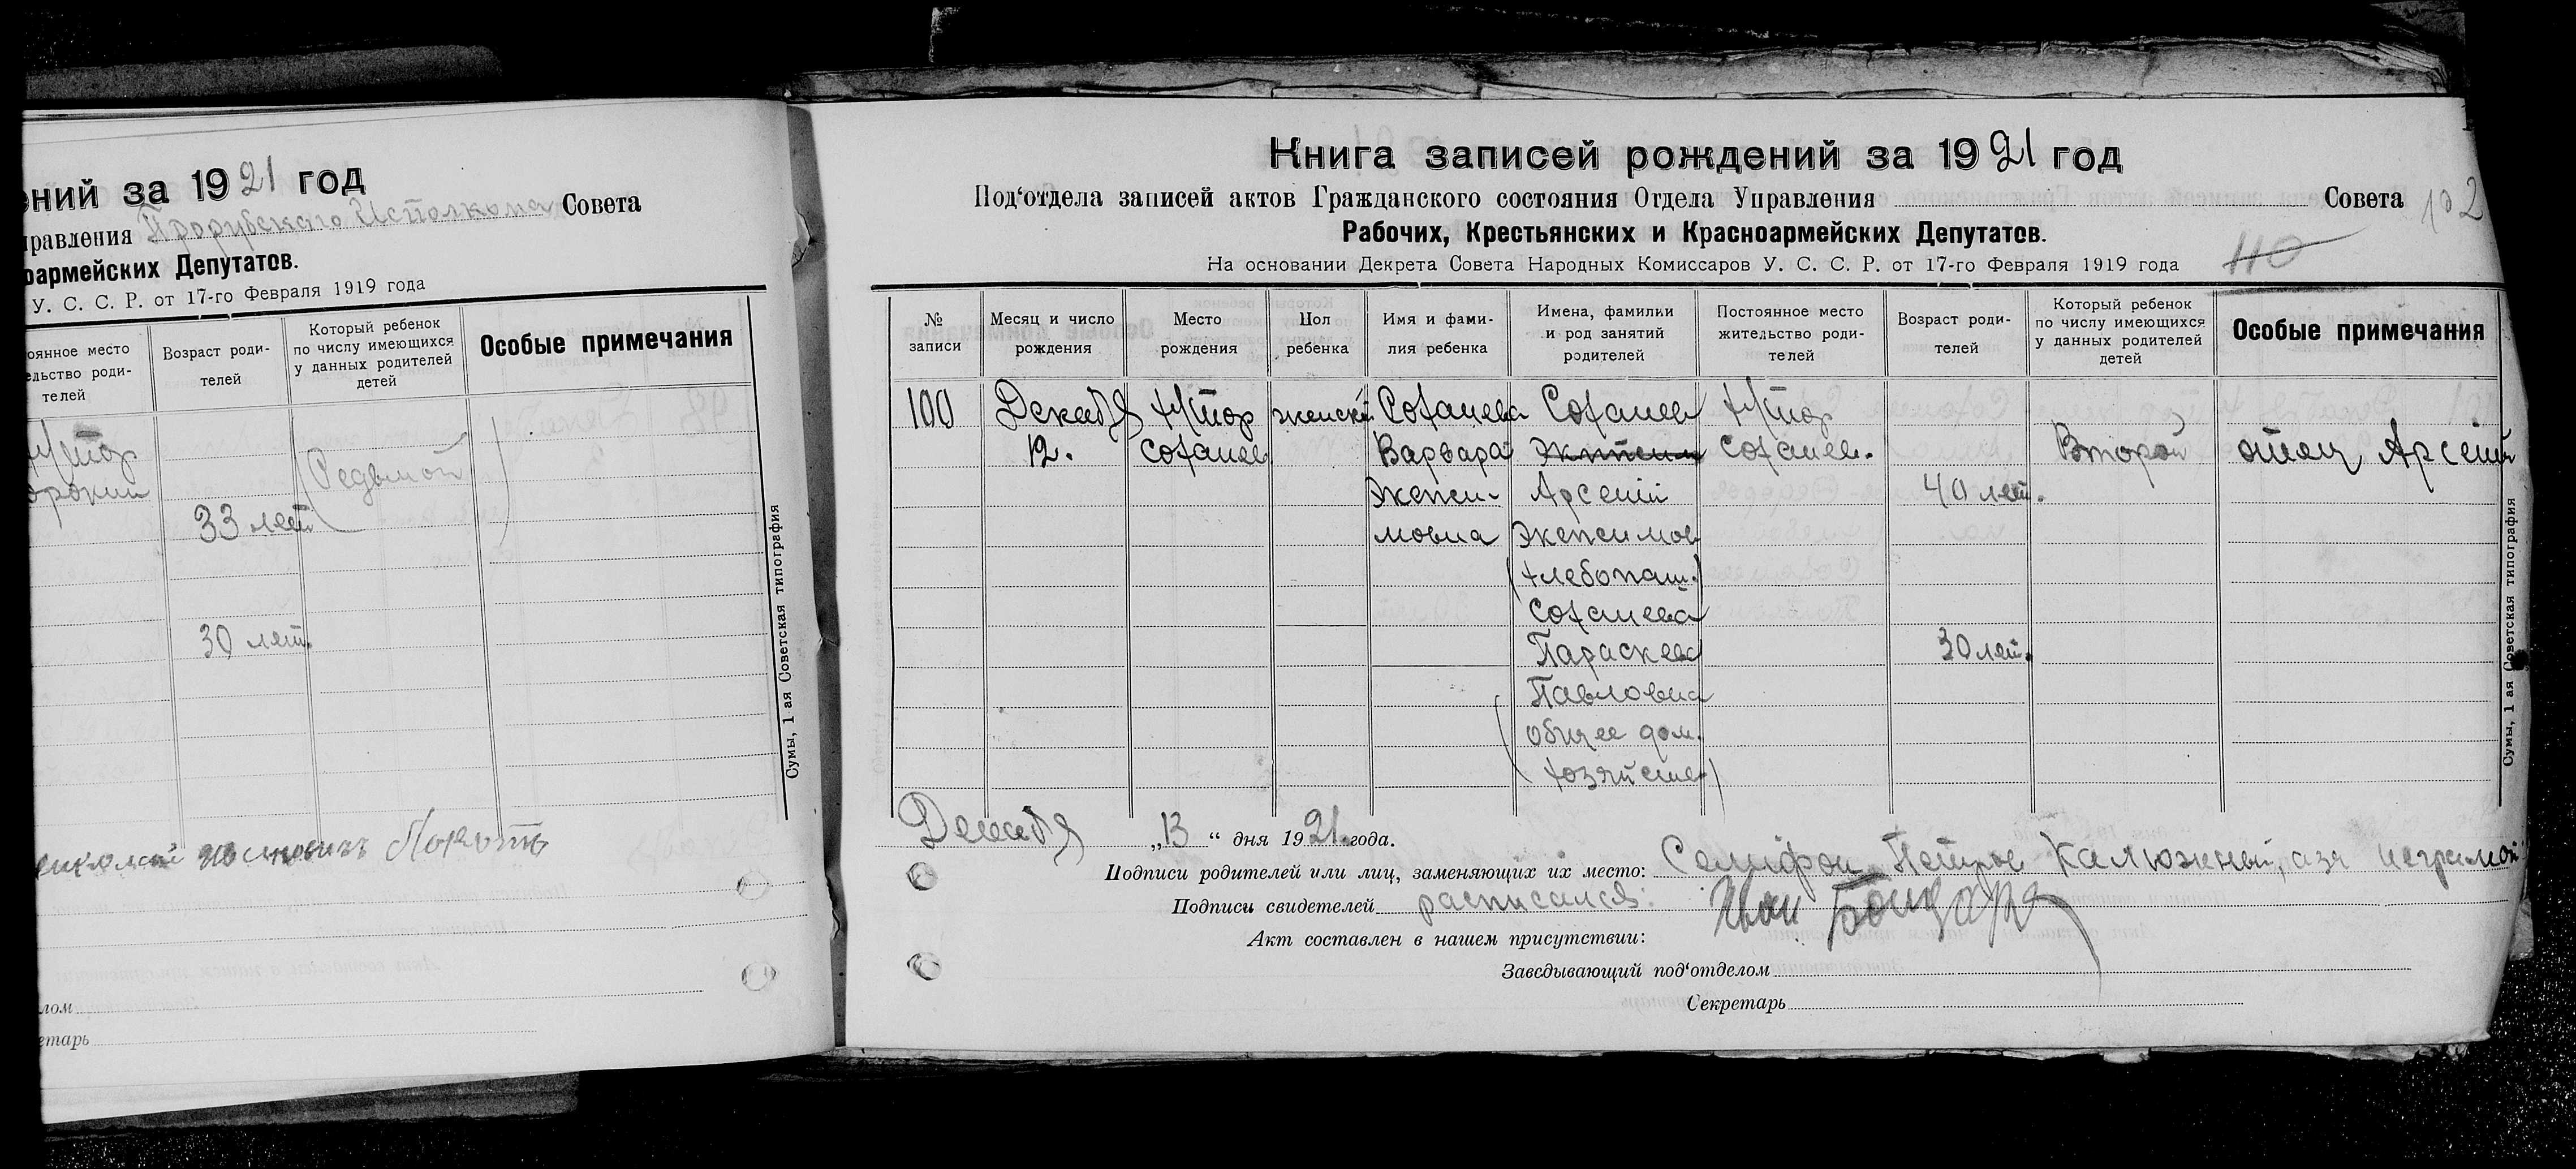 ений за 1921 год
правления Прорубскаго Исполкома Совета
оармейских Депутатов.
У. С. С. Р. от 17-го Февраля 1919 года
оянное место
ельство роди-
телей
Возраст роди-
телей
Который ребенок
по числу имеющихся
у данных родителей
детей
Особые примечания
Седьмой
33 лет
30 лет.
Сумы, 1-ая Советская типография
лом
етарь
Книга записей рождений за 1921 год
Под‘отдела записей актов Гражданского состояния Отдела Управления Совета
102
Рабочих, Крестьянских и Красноармейских Депутатов.
На основании Декрета Совета Народных Комиссаров У. С. С. Р. от 17-го Февраля 1919 года
110
№
записи
Месяц и число
рождения
Место
рождения
Пол
ребенка
Имя и фами-
лия ребенка
Имена, фамилии
и род занятий
родителей
Постоянное место
жительство роди-
телей
Возраст роди-
телей
Который ребенок
по числу имеющихся
у данных родителей
детей
Особые примечания
100
Декабя
12.
Хутор
Соханев
женский
Соханева
Варвара
Соханев
Арсений
(хлебопаш.)
Соханева
Параскева
Павловна
(общее дом.
хозяйство)
Хутор
Соханев.
40 лет.
30 лет.
Второй
отец Арсений
Сумы, 1-ая Советская типография
Декабя „13“ дня 1921 года.
Подписи родителей или лиц, заменяющих их место: Петров Калюжный, а за неграмот
Подписи свидетелей росписался: Иван Бондарь
Акт составлен в нашем присутствии:
Заведывающий под‘отделом
Секретарь